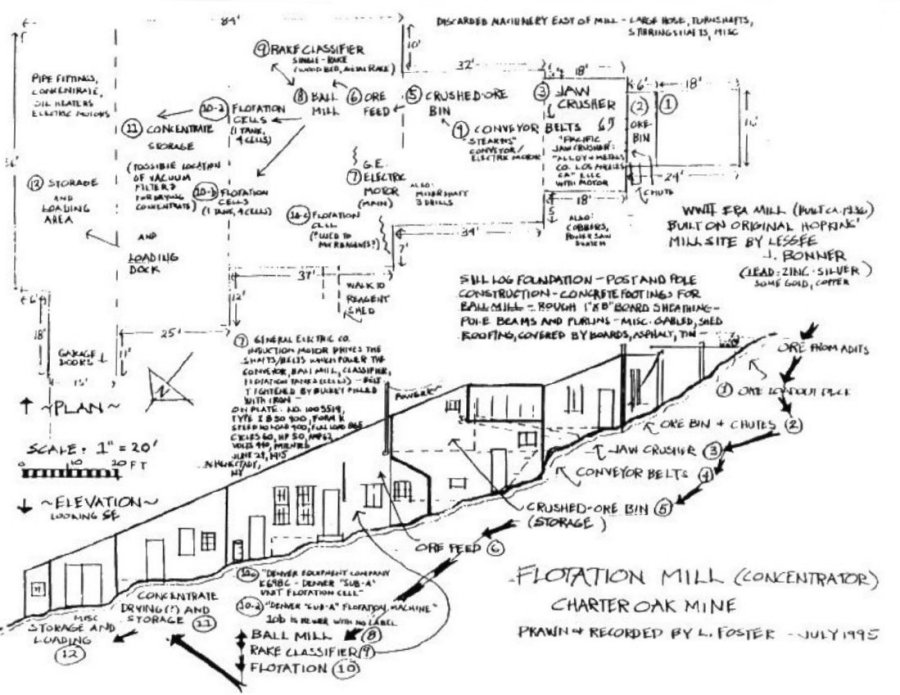 84'
DISCARDED MACHINERY EAST OF MILL - LARGE HOSE, TURNSHAFTS,
MISC
10'
⑨ RAKE CLASSIFIER
SINGLE-RAKE
(WOOD BED, METAL RAKE)
32'
18'
6'
18'
PIPE FITTINGS,
CONCENTRATE,
OIL HEATERS
ELECTRIC MOTORS
10-2 FLOTATION
CELLS
(1 TANK,
4 CELLS)
⑧ BALL
MILL
⑥ ORE
FEED
⑤ CRUSHED-ORE
BIN
③ JAW
CRUSHER
②
ORE-
BIN
①
⑪ CONCENTRATE
STORAGE
(POSSIBLE LOCATION
OF VACUUM
FILTER &
FOR DRYING
CONCENTRATE)
④ CONVEYOR BELTS
"STEARNS"
CONVEYOR/
ELECTRIC MOTOR
"PACIFIC
JAW CRUSHER:
"ALLOY & METALS
CO. LOS ANGELES
WITH MOTOR
24'
CHUTE
⑫ STORAGE
AND
LOADING
AREA
FLOTATION
CELLS
(1 TANK, 4 CELLS)
G.E.
⑦ ELECTRIC
MOTOR
(MAIN)
ALSO:
3 DRILLS
18'
5'
FLOTATION
CELL
ALSO:
COBBERS,
POWER SAW
34'
7'
AND
LOADING
DOCK
WWII ERA MILL (BUILT CA. 1936)
BUILT ON ORIGINAL HOPKINS'
MILL SITE BY LESSEE
J. BONNER
(LEAD-ZINC-SILVER)
SOME GOLD, COPPER
37'
12'
WALK TO
REAGENT
SHED
SILL LOG FOUNDATION - POST AND POLE
CONSTRUCTION - CONCRETE FOOTINGS FOR
BALL MILL - ROUGH 1"X8" BOARD SHEATHING -
POLE BEAMS AND PURLINS - MISC. GABLED, SHED
ROOFING, COVERED BY BOARDS, ASPHALT, TIN
6'
18'
25'
11'
GARAGE
DOORS
15'
⑦ GENERAL ELECTRIC CO.
INDUCTION MOTOR DRIVES THE
SHAFTS/BELTS WHICH POWER THE
CONVEYOR, BALL MILL, CLASSIFIER,
FLOTATION TANKS (CELLS) - BELT
TIGHTENED BY BUCKET FILLED
WITH IRON -
ON PLATE: NO. 1005519,
FORM K
CYCLES 60, HP 50,
JUNE 29, 1915
SCHENECTADY,
NY
N
POWER
↑ ~PLAN~
SCALE: 1" = 20'
0 10 20 FT
↓ ~ELEVATION~
LOOKING SE
ORE FROM ADITS
① ORE LOADOUT DECK
ORE BIN & CHUTES ②
JAW CRUSHER ③
CONVEYOR BELTS ④
CRUSHED-ORE BIN ⑤
(STORAGE)
ORE FEED ⑥
"DENVER EQUIPMENT COMPANY
DENVER "SUB-A"
UNIT FLOTATION CELL"
10-2 "DENVER "SUB-A" FLOTATION MACHINE"
10b IS NEWER WITH NO LABEL
CONCENTRATE
DRYING(?) AND
STORAGE ⑪
MISC
STORAGE AND
LOADING
⑫
BALL MILL ⑧
RAKE CLASSIFIER ⑨
FLOTATION ⑩
FLOTATION MILL (CONCENTRATOR)
CHARTER OAK MINE
DRAWN & RECORDED BY L. FOSTER - JULY 1995